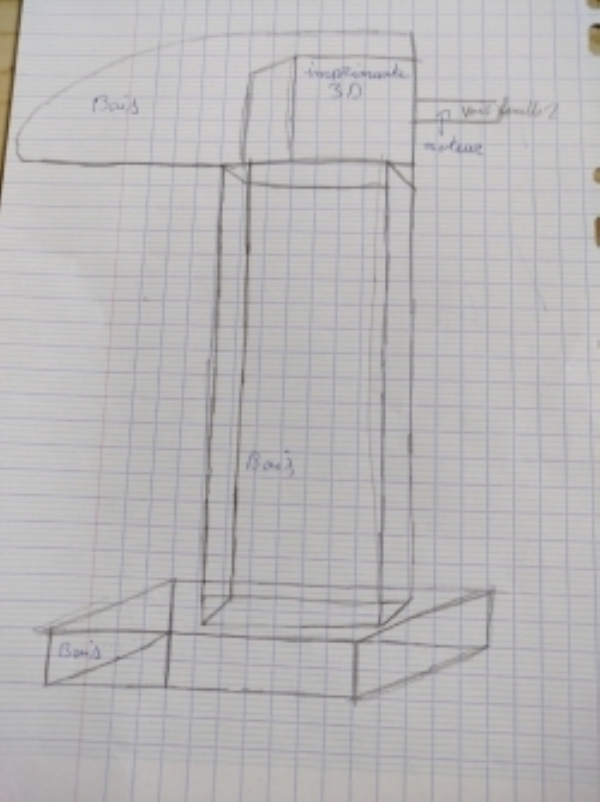 imprimante
3D
Bois
voir feuille 2
moteur
Bois
Bois